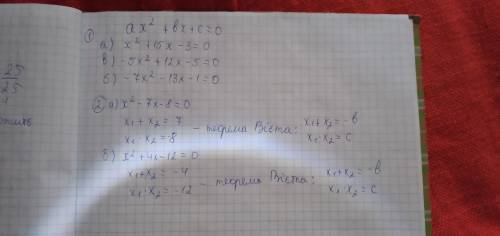 ① ax² + bx + c = 0
а) x² + 15x - 3 = 0
в) -5x² + 12x - 5 = 0
б) -7x² - 13x - 1 = 0
② а) x² - 7x - 8 = 0
x₁ + x₂ = 7
x₁ · x₂ = -8 - теорема Вієта: x₁ + x₂ = -b
x₁ · x₂ = c
б) x² + 4x - 12 = 0
x₁ + x₂ = -4
x₁ · x₂ = -12 - теорема Вієта: x₁ + x₂ = -b
x₁ · x₂ = c
25
25